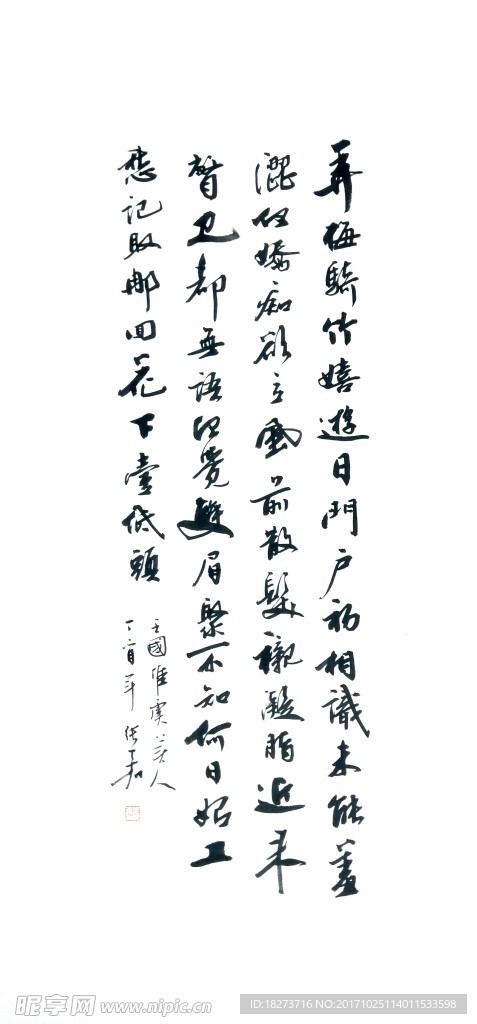 弄梅騎竹嬉遊日門戶初相識未能羞
澀但嬌痴卻立風前散髮襯凝脂近來
瞥見都無語但覺雙眉聚不知何日始工
愁記取那回花下壹低頭
王國維虞美人
丁酉年
昵享网 www.nipic.cn
ID:18273716 NO:20171025114011533598